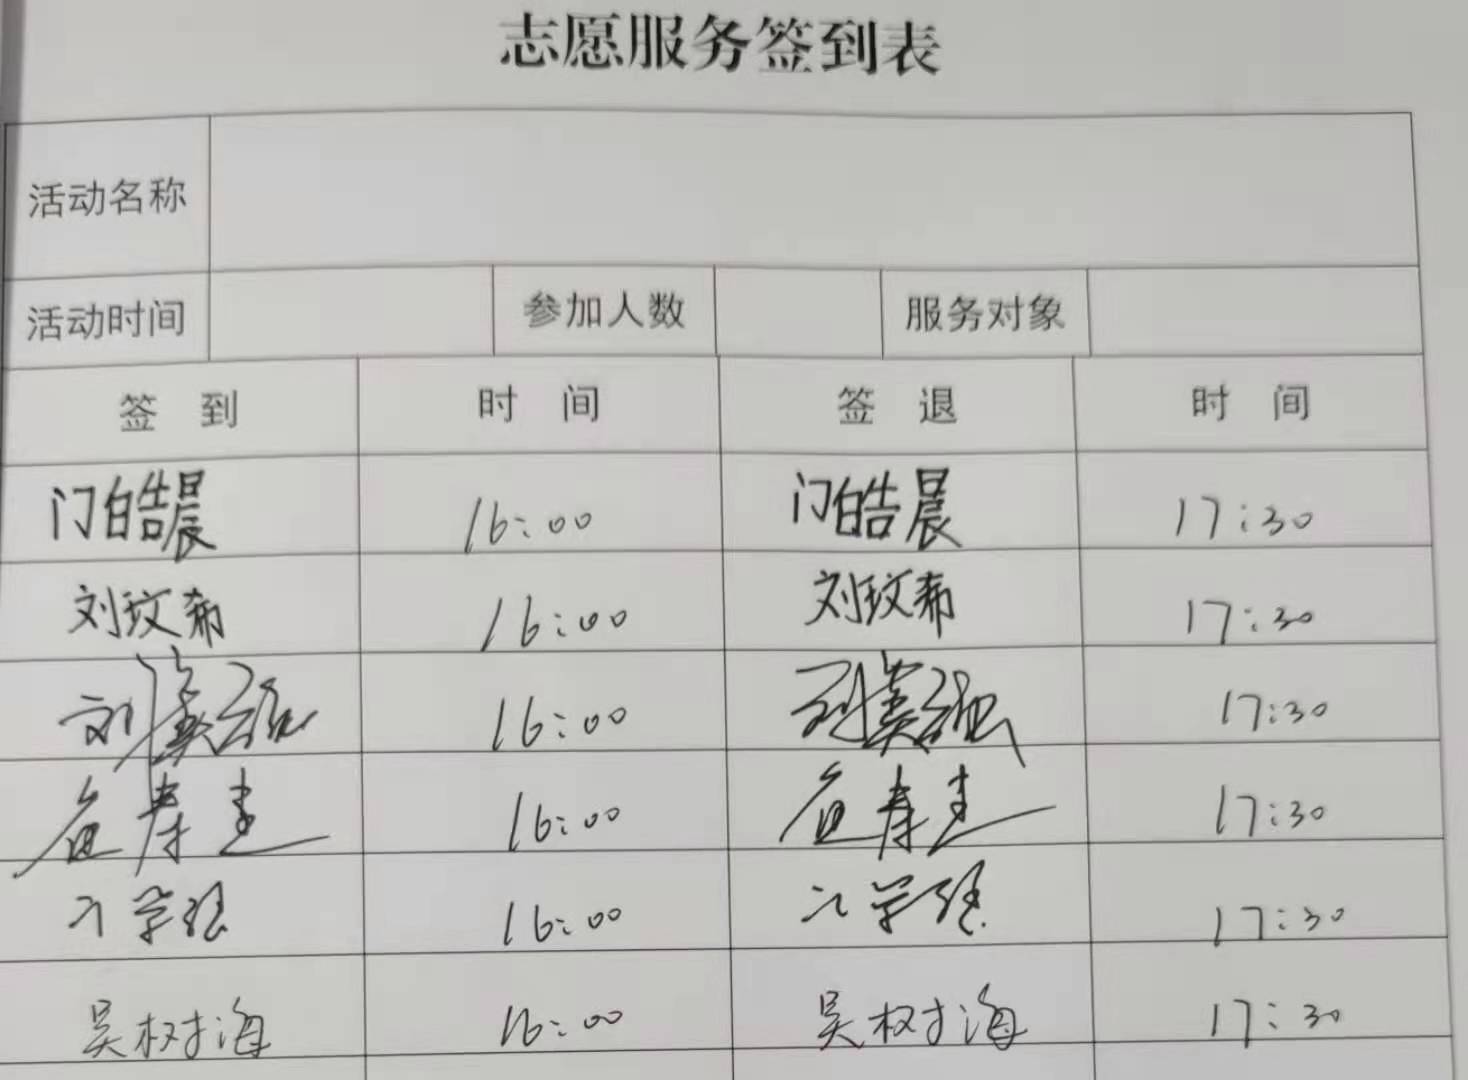 志愿服务签到表
活动名称
活动时间 参加人数 服务对象
签到 时间 签退 时间
门皓晨 16:00 门皓晨 17:30
刘玟希 16:00 刘玟希 17:30
刘 16:00 刘 17:30
16:00 17:30
学 16:00 学 17:30
吴树海 16:00 吴树海 17:30